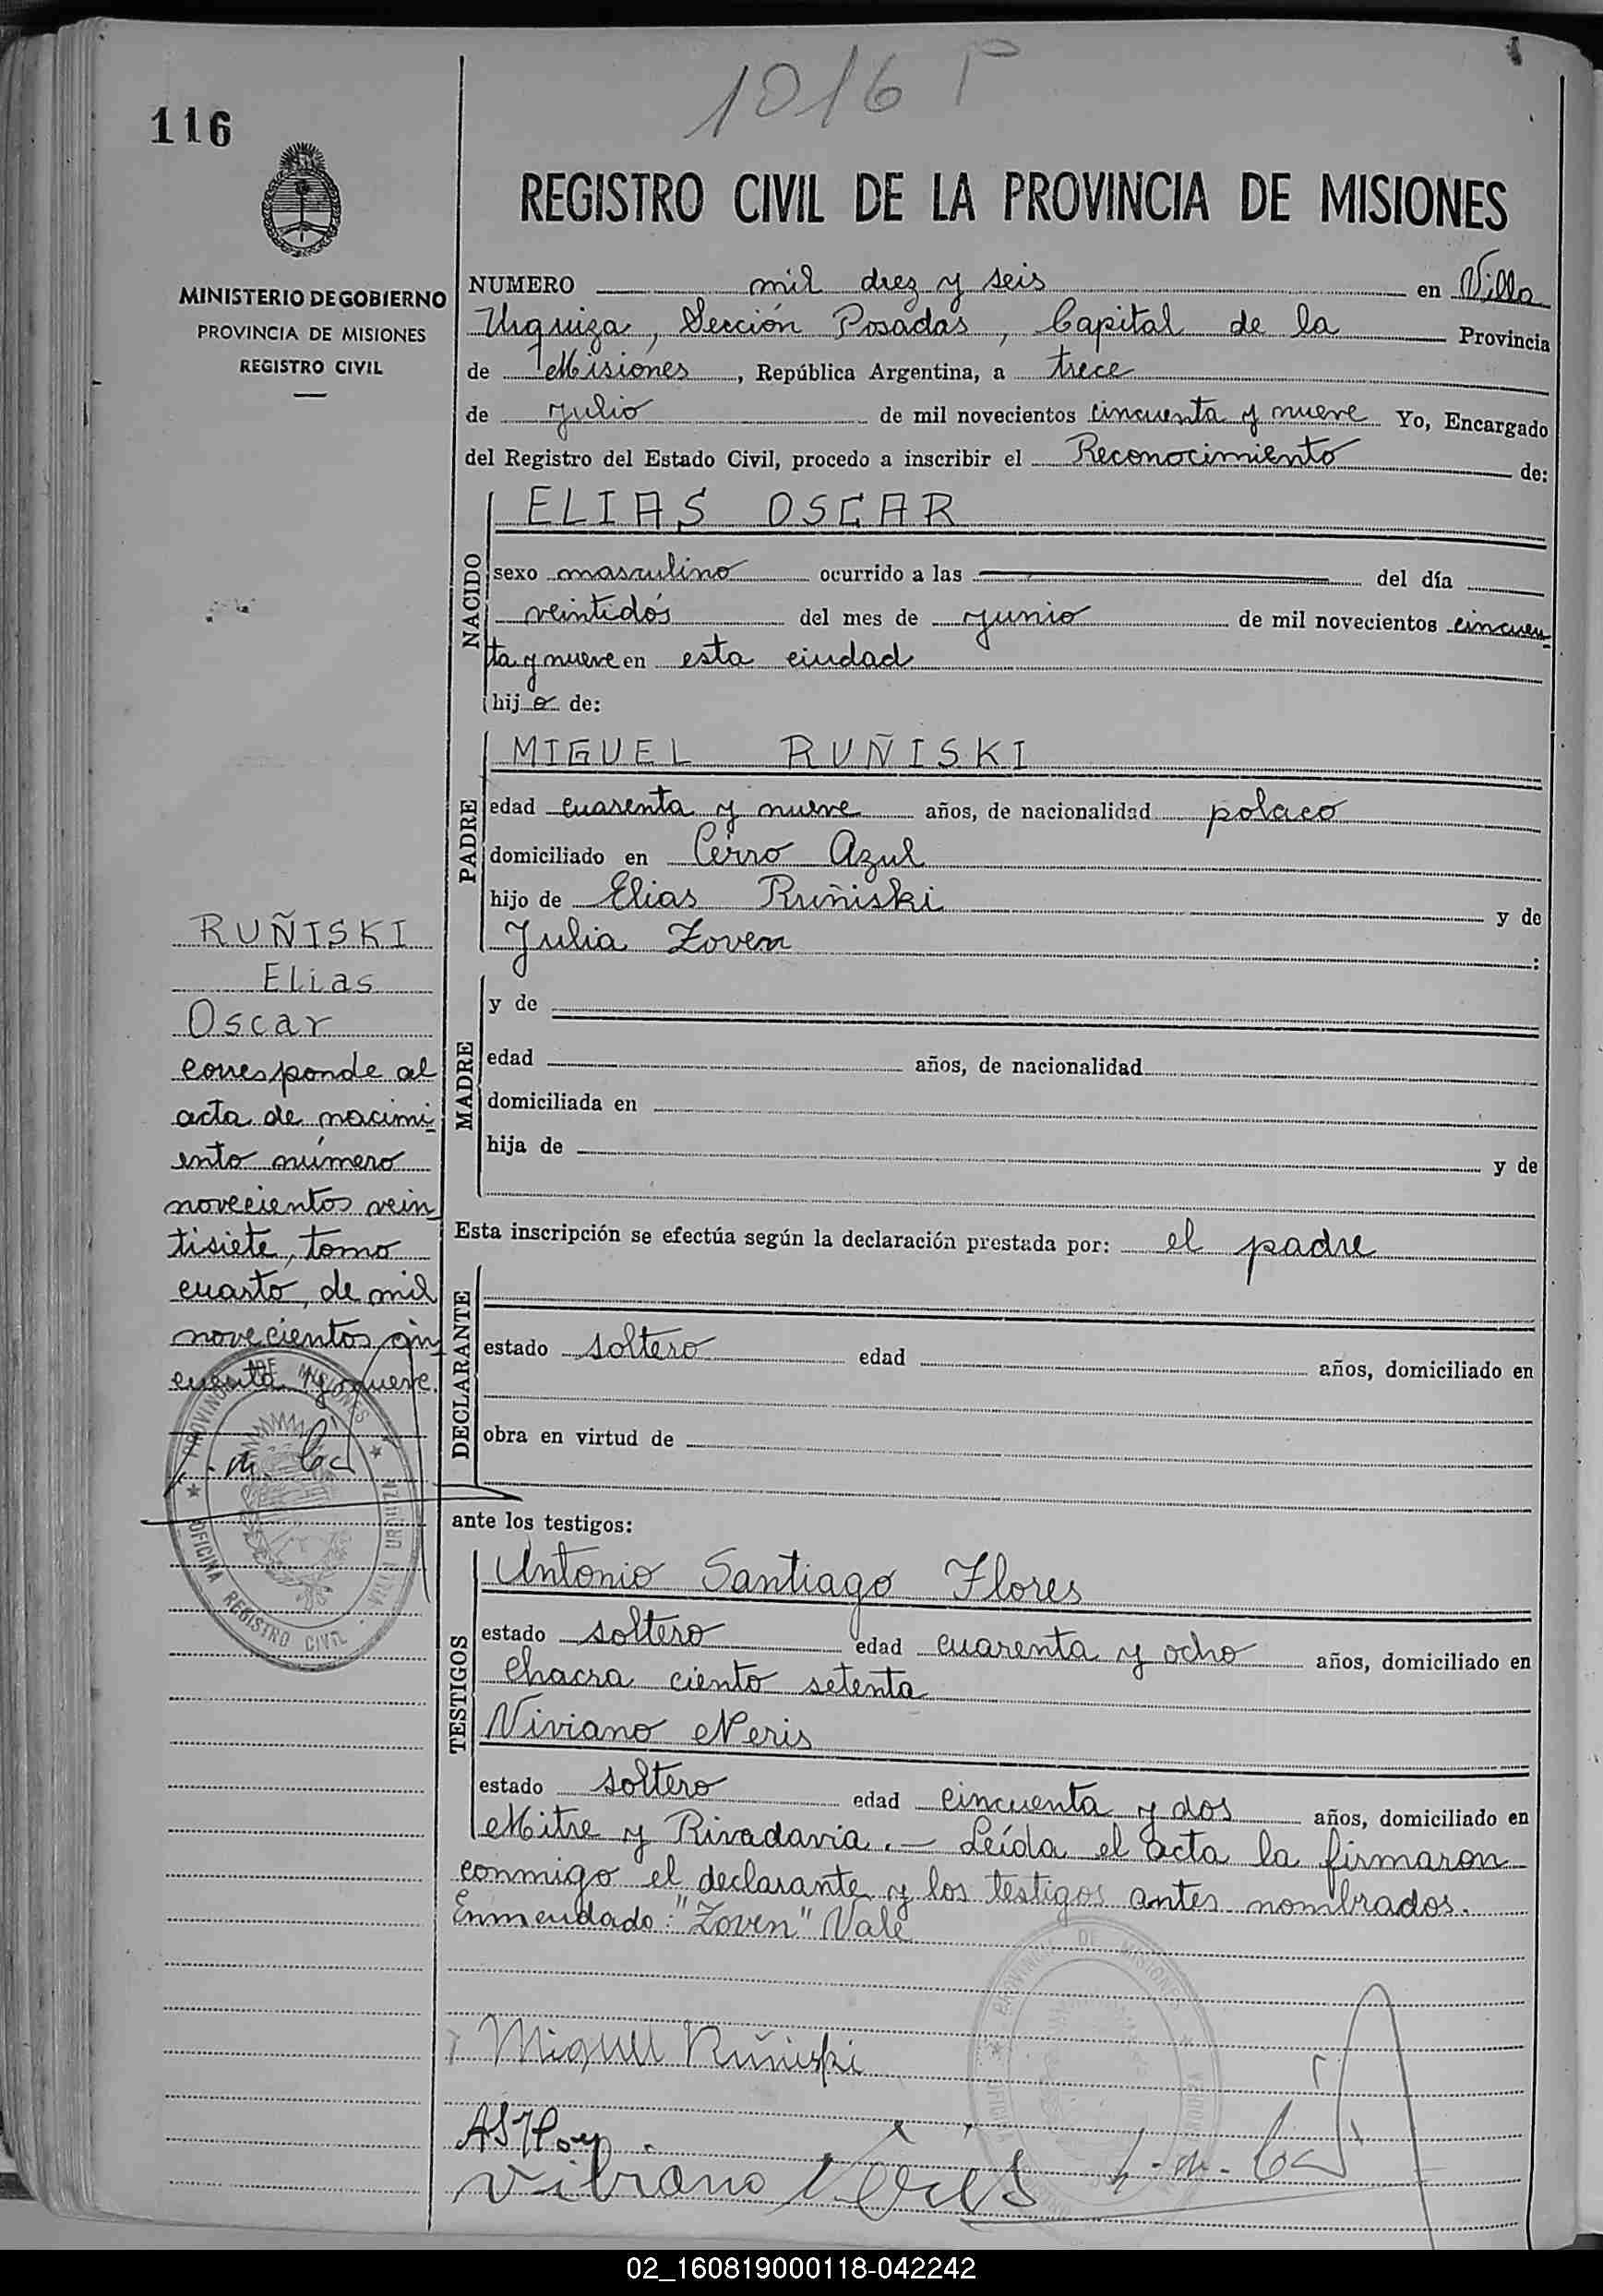 1016 P
116
REGISTRO CIVIL DE LA PROVINCIA DE MISIONES
MINISTERIO DE GOBIERNO
PROVINCIA DE MISIONES
REGISTRO CIVIL
NUMERO mil diez y seis en Villa
Urquiza, Sección Posadas, Capital de la Provincia
de Misiones, República Argentina, a trece
de julio de mil novecientos cincuenta y nueve Yo, Encargado
del Registro del Estado Civil, procedo a inscribir el Reconocimiento de:
NACIDO
ELIAS OSCAR
sexo masculino ocurrido a las del día
veintidós del mes de junio de mil novecientos cincuen
ta y nueve en esta ciudad
hijo de:
PADRE
MIGUEL RUÑISKI
edad cuarenta y nueve años, de nacionalidad polaco
domiciliado en Cerro Azul
hijo de Elias Ruñiski y de
Julia Zoven ;
MADRE
y de
edad años, de nacionalidad
domiciliada en
hija de y de
Esta inscripción se efectúa según la declaración prestada por: el padre
DECLARANTE
estado soltero edad años, domiciliado en
obra en virtud de
ante los testigos:
TESTIGOS
Antonio Santiago Flores
estado soltero edad cuarenta y ocho años, domiciliado en
chacra ciento setenta
Viviano Neris
estado soltero edad cincuenta y dos años, domiciliado en
Mitre y Rivadavia.— Leída el acta la firmaron
conmigo el declarante y los testigos antes nombrados.
Enmendado: "Zoven" Vale
Miguel Ruñiski
Vibiano Neris
RUÑISKI
Elias
Oscar
corresponde al
acta de nacimi
ento número
novecientos vein
tisiete, tomo
cuarto, de mil
novecientos cin
cuenta y nueve.
PROVINCIA DE MISIONES
OFICINA REGISTRO CIVIL VILLA URQUIZA
PROVINCIA DE MISIONES
02_160819000118-042242